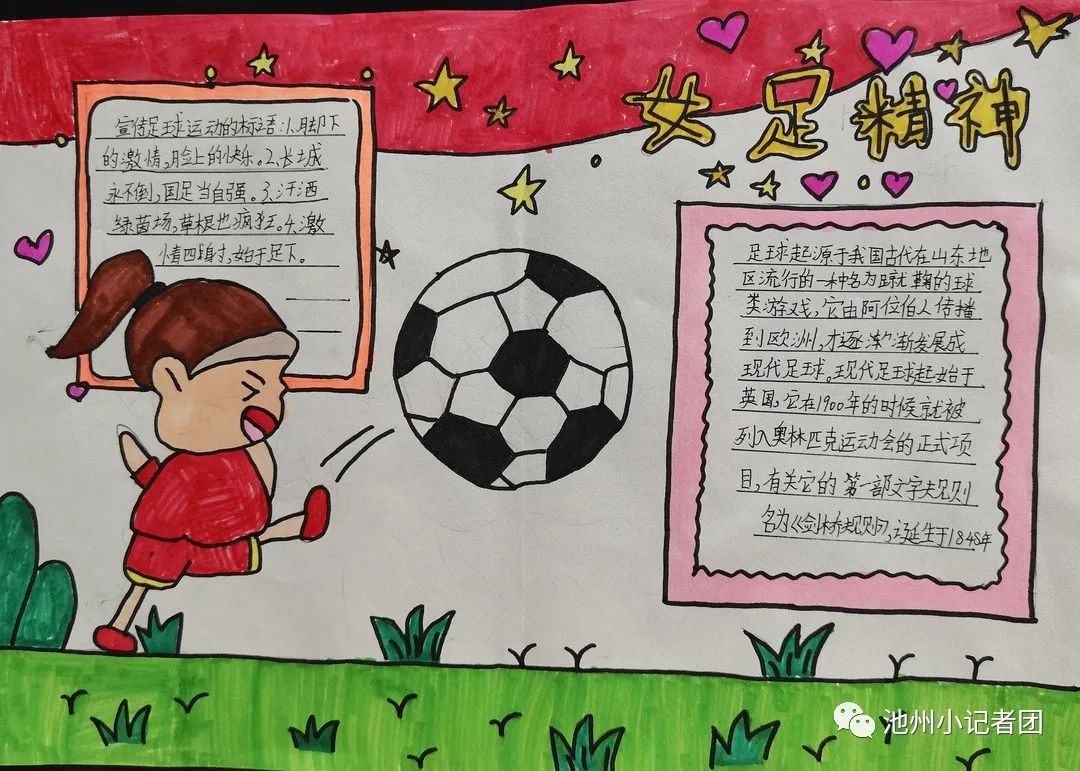 女足精神
宣传足球运动的标语:1.脚下
的激情,脸上的快乐。2.长城
永不倒,国足当自强。3.汗洒
绿茵场,草根也疯狂。4.激
情四射,始于足下。
足球起源于我国古代在山东地
区流行的一种名为蹴鞠的球
类游戏,它由阿位伯人传播
到欧洲,才逐渐发展成
现代足球。现代足球起始于
英国,它在1900年的时候就被
列入奥林匹克运动会的正式项
目,有关它的第一部文字规则
名为《剑桥规则》,诞生于1848年
池州小记者团